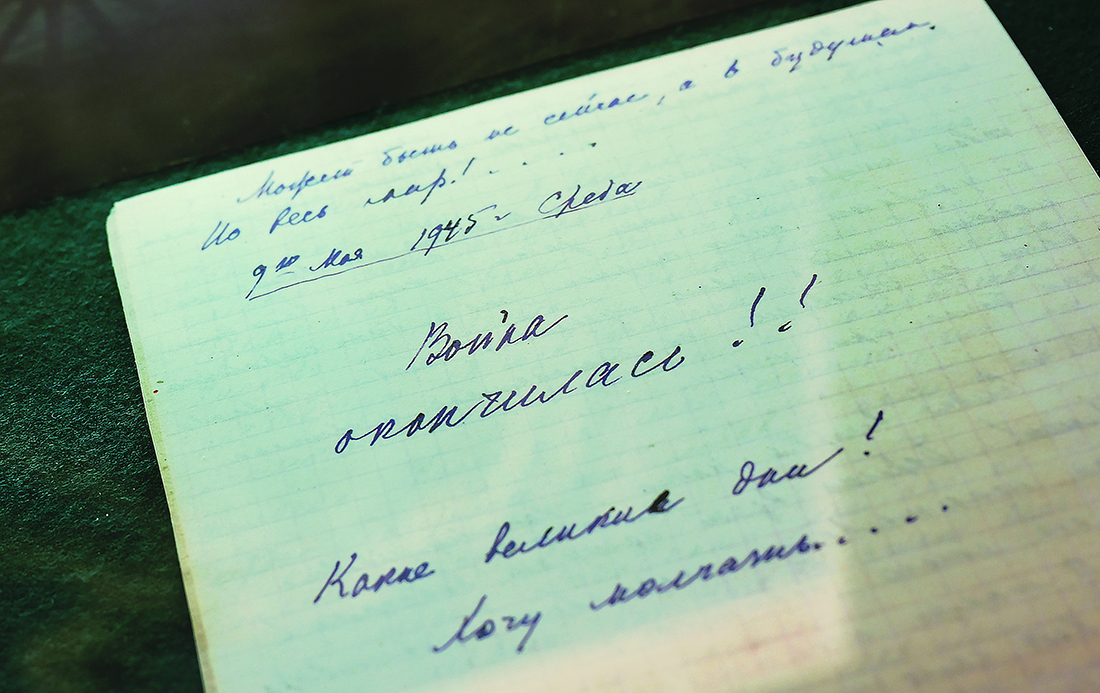 Может быть не сейчас, а в будущем.
Но весь мир!....
9го Мая 1945 г Среда
Война
окончилась!!
Какие великие дни!
Хочу молчать.....